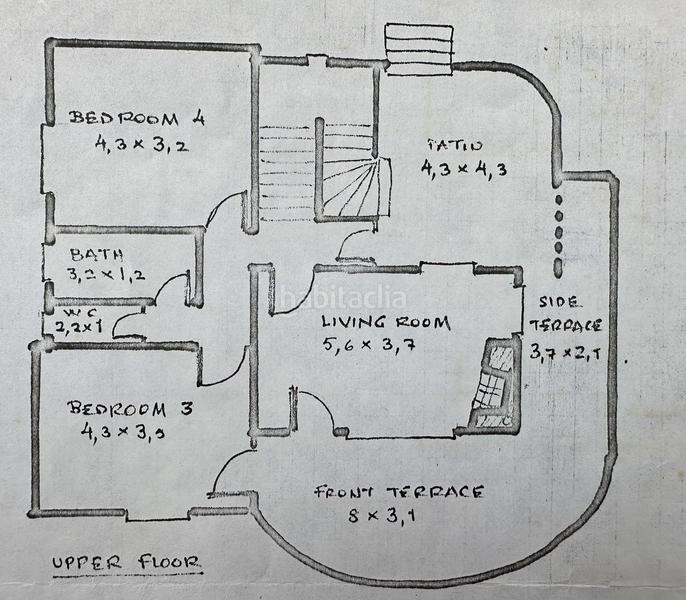 BEDROOM 4
4,3 x 3,2
PATIO
4,3 x 4,3
BATH
3,2 x 1,2
WC
2,2x1
habitaclia
LIVING ROOM
5,6 x 3,7
SIDE
TERRACE
3,7 x 2,1
BEDROOM 3
4,3 x 3,5
FRONT TERRACE
8 x 3,1
UPPER FLOOR